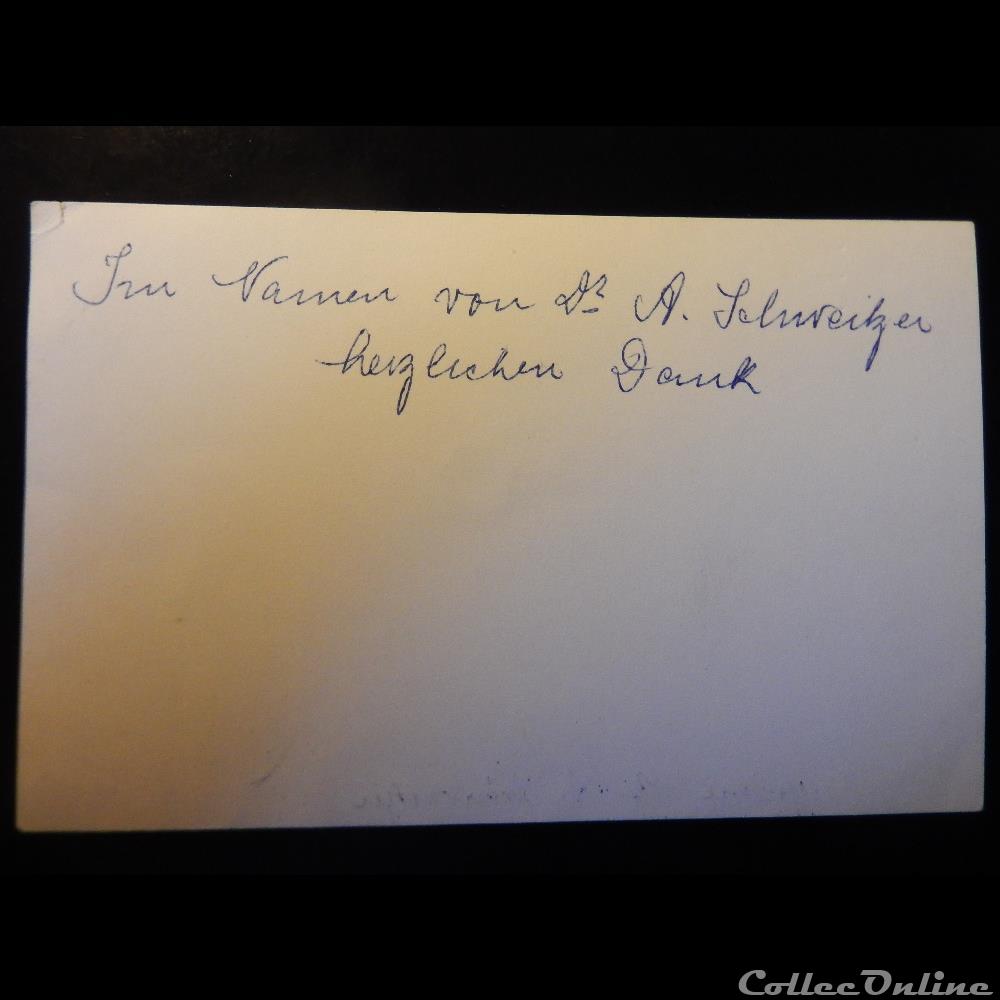 Im Namen von Dr A. Schweitzer
herzlichen Dank
ColleeOnline